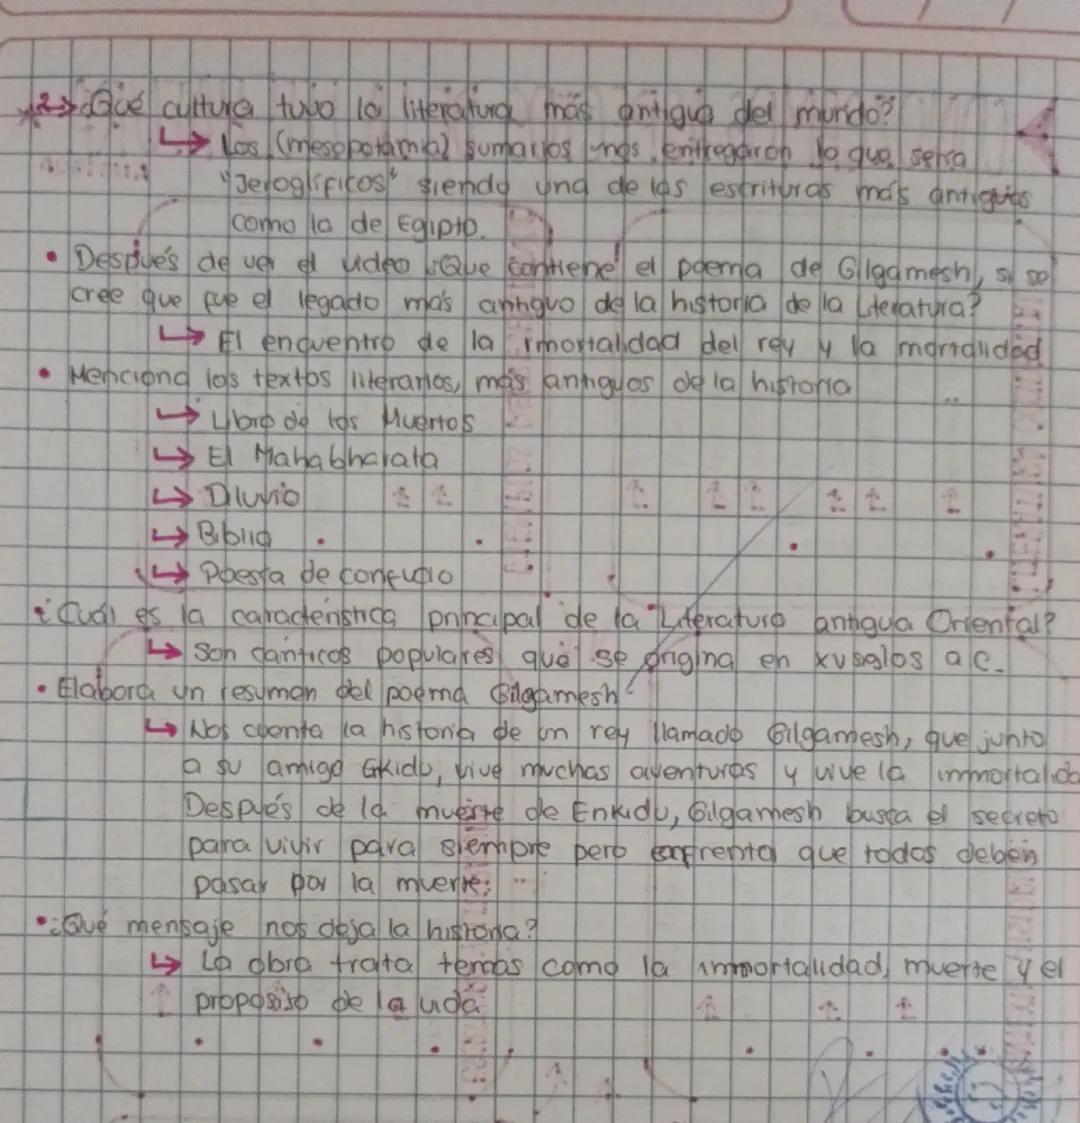 2→ ¿Qué cultura tuvo la literatura más antigua del mundo?
↳ Los (mesopotamia) sumarios nos entregaron lo que seria
"Jeroglíficos" siendo una de las escrituras más antiguas
como la de Egipto.
• Después de ver el video ¿Que contiene el poema de Gilgamesh, si se
cree que fue el legado más antiguo de la historia de la literatura?
↳ El encuentro de la inmortalidad del rey y la mortalidad
• Menciona los textos literarios, más antiguos de la historia
↳ Libro de los Muertos
↳ El Mahabharata
↳ Diluvio
↳ Biblia
↳ Poesía de confucio
¿Cuál es la característica principal de la Literatura antigua Oriental?
↳ Son cánticos populares que se origina en xv siglos a.c.
• Elabora un resumen del poema Gilgamesh
↳ Nos cuenta la historia de un rey llamado Gilgamesh, que junto
a su amigo Gkidu, vive muchas aventuras y vive la immortalida
Después de la muerte de Enkidu, Gilgamesh busca el secreto
para vivir para siempre pero enfrenta que todos deben
pasar por la muerte.
• ¿Qué mensaje nos deja la historia?
↳ La obra trata temas como la immortalidad, muerte y el
proposito de la vida